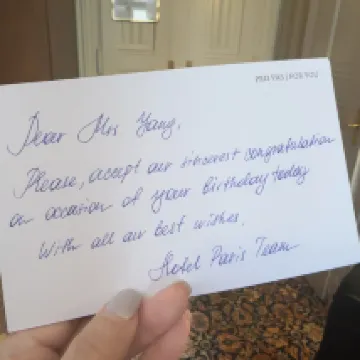 PRO VÁS | FOR YOU
Dear Mrs Yang,
Please, accept our sincerest congratulation
on occasion of your Birthday today
With all our best wishes.
Hotel Paris Team